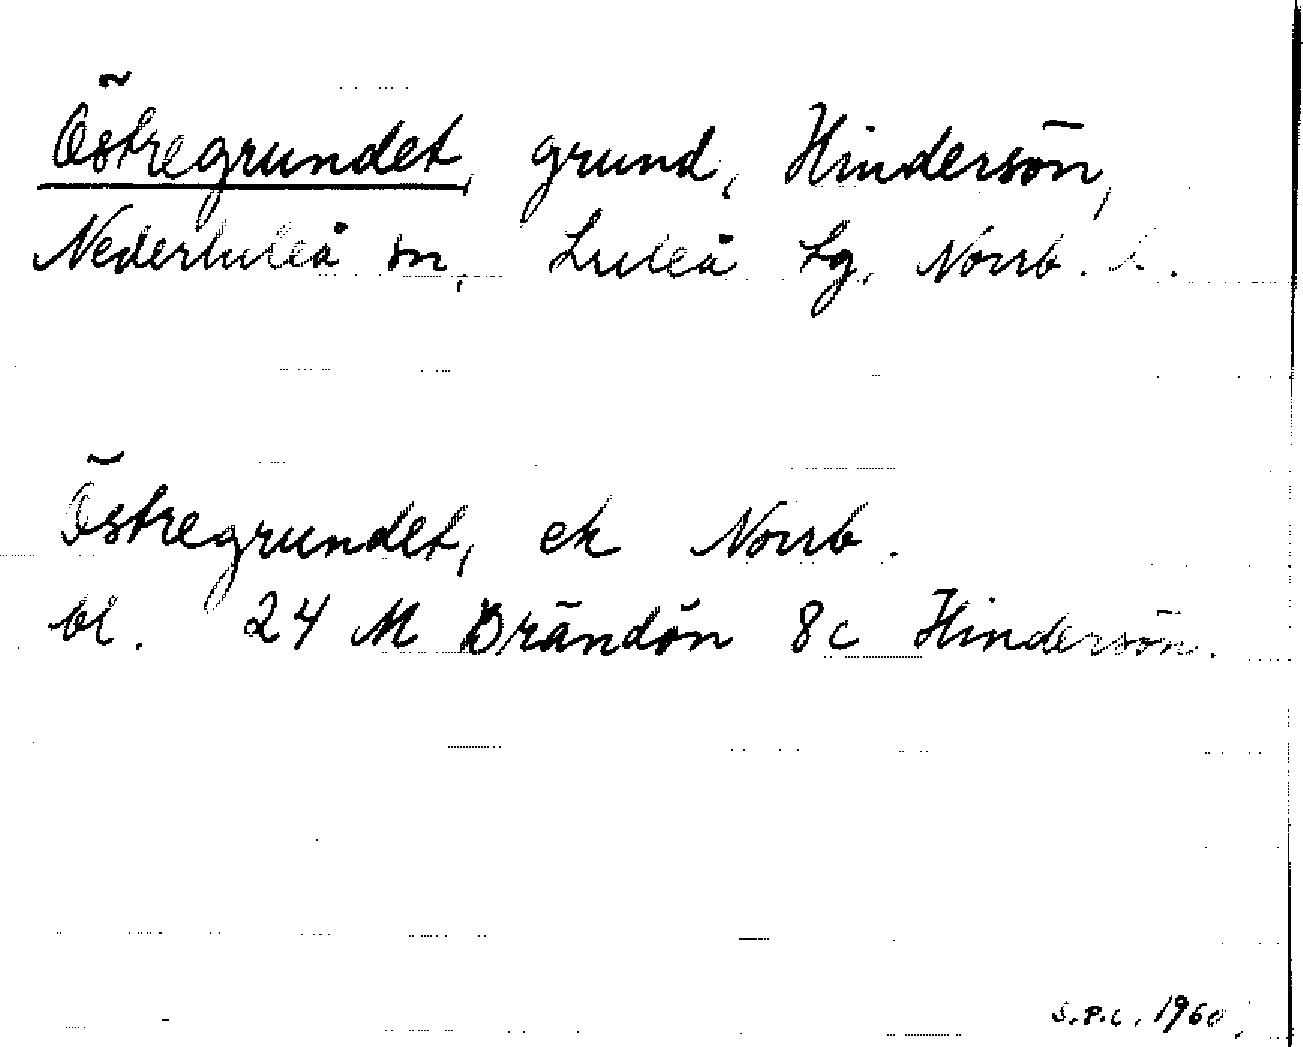 Östregrundet, grund, Hindersön,
Nederluleå sn, Luleå tg, Norrb. l.
Östregrundet, ek Norrb.
bl. 24 M Brändön 8c Hindersön.
S.P.C. 1960